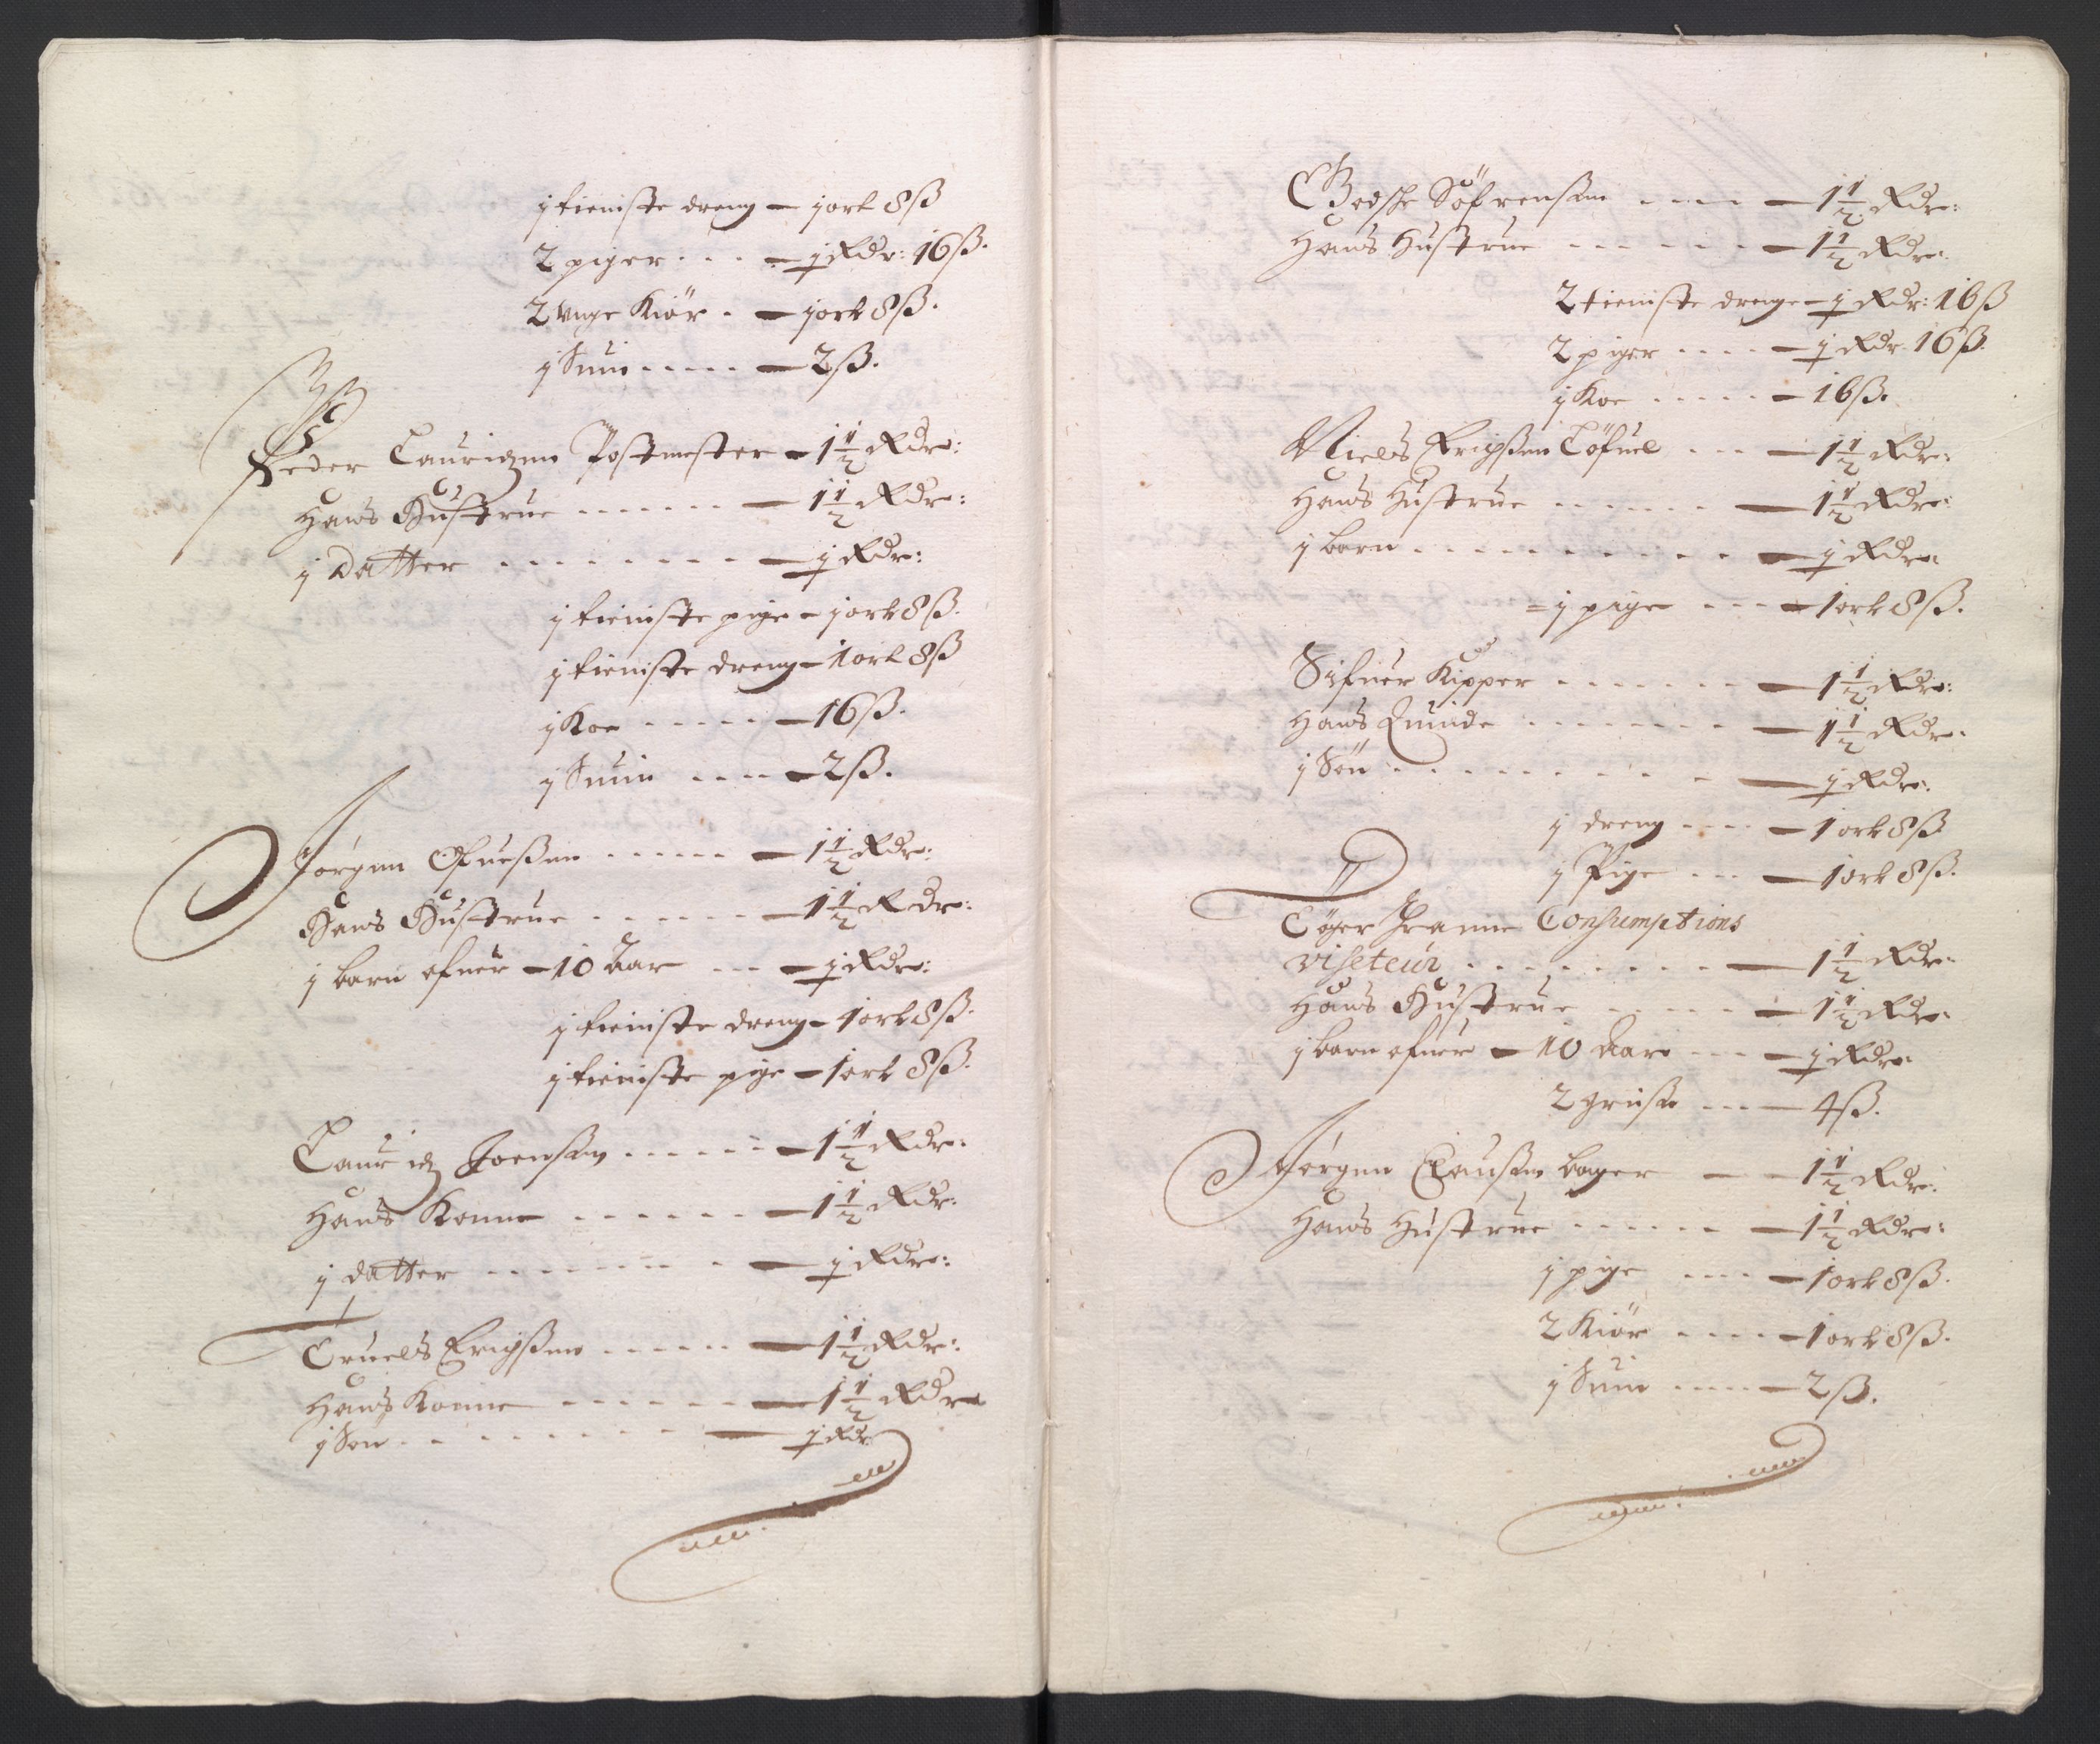 j tieniste dreng – j ort 8 ß
2 piger . . . – j Rdr: 16 ß.
2 unge Kiör . – j ort 8 ß.
j Suin . . . . . – 2 ß.
Peder Lauridzen Postmester – 1 1/2 Rdr:
Hans Hustrue . . . . . . . – 1 1/2 Rdr:
j datter . . . . . . . . – j Rdr:
j tieniste pige – j ort 8 ß.
j tieniste dreng – 1 ort 8 ß
j Koe . . . . . – 16 ß.
j Suin . . . . – 2 ß.
Jörgen Ofuesßen . . . . . – 1 1/2 Rdr:
Hans Hustrue . . . . . . – 1 1/2 Rdr:
j barn ofuer – 10 Aar . . . – j Rdr:
j tieniste dreng – 1 ort 8 ß.
j tieniste pige – 1 ort 8 ß.
Lauridz Joensen . . . . . . – 1 1/2 Rdr:
Hans Konne . . . . . . – 1 1/2 Rdr:
j datter . . . . . . . – j Rdr:
Truels Erichßen . . . . . . – 1 1/2 Rdr:
Hans Konne . . . . . . – 1 1/2 Rdr
j Sön . . . . . . . – j Rdr
Godske Söfrensen . . . . – 1 1/2 Rdr:
Hans Hustrue . . . . . . – 1 1/2 Rdr:
2 tieniste drenge – j Rdr: 16 ß
2 piger . . . . – j Rdr. 16 ß.
j Koe . . . . . – 16 ß.
Niels Erichßen Töfuel . . . – 1 1/2 Rdr:
Hans Hustrue . . . . . . – 1 1/2 Rdr:
j barn . . . . . . . . . . – j Rdr:
= j pige . . . – 1 ort 8 ß.
Sifuer Kipper . . . . . . . – 1 1/2 Rdr:
Hans Quinde . . . . . . . – 1 1/2 Rdr.
j Sön . . . . . . . . . – j Rdr:
j dreng . . . – 1 ort 8 ß
j Pige . . . – 1 ort 8 ß.
Töger Consumptions
viseteur . . . . . . . . – 1 1/2 Rdr.
Hans Hustrue . . . . . – 1 1/2 Rdr.
j barn ofuer – 10 Aar . . . – j Rdr:
2 griise . . . – 4 ß.
Jörgen Claußen bager – . – 1 1/2 Rdr:
Hans Hustrue . . . . . . – 1 1/2 Rdr:
j pige . . . . – 1 ort 8 ß.
2 Kiör . . . . – 1 ort 8 ß.
j Suin . . . . – 2 ß.